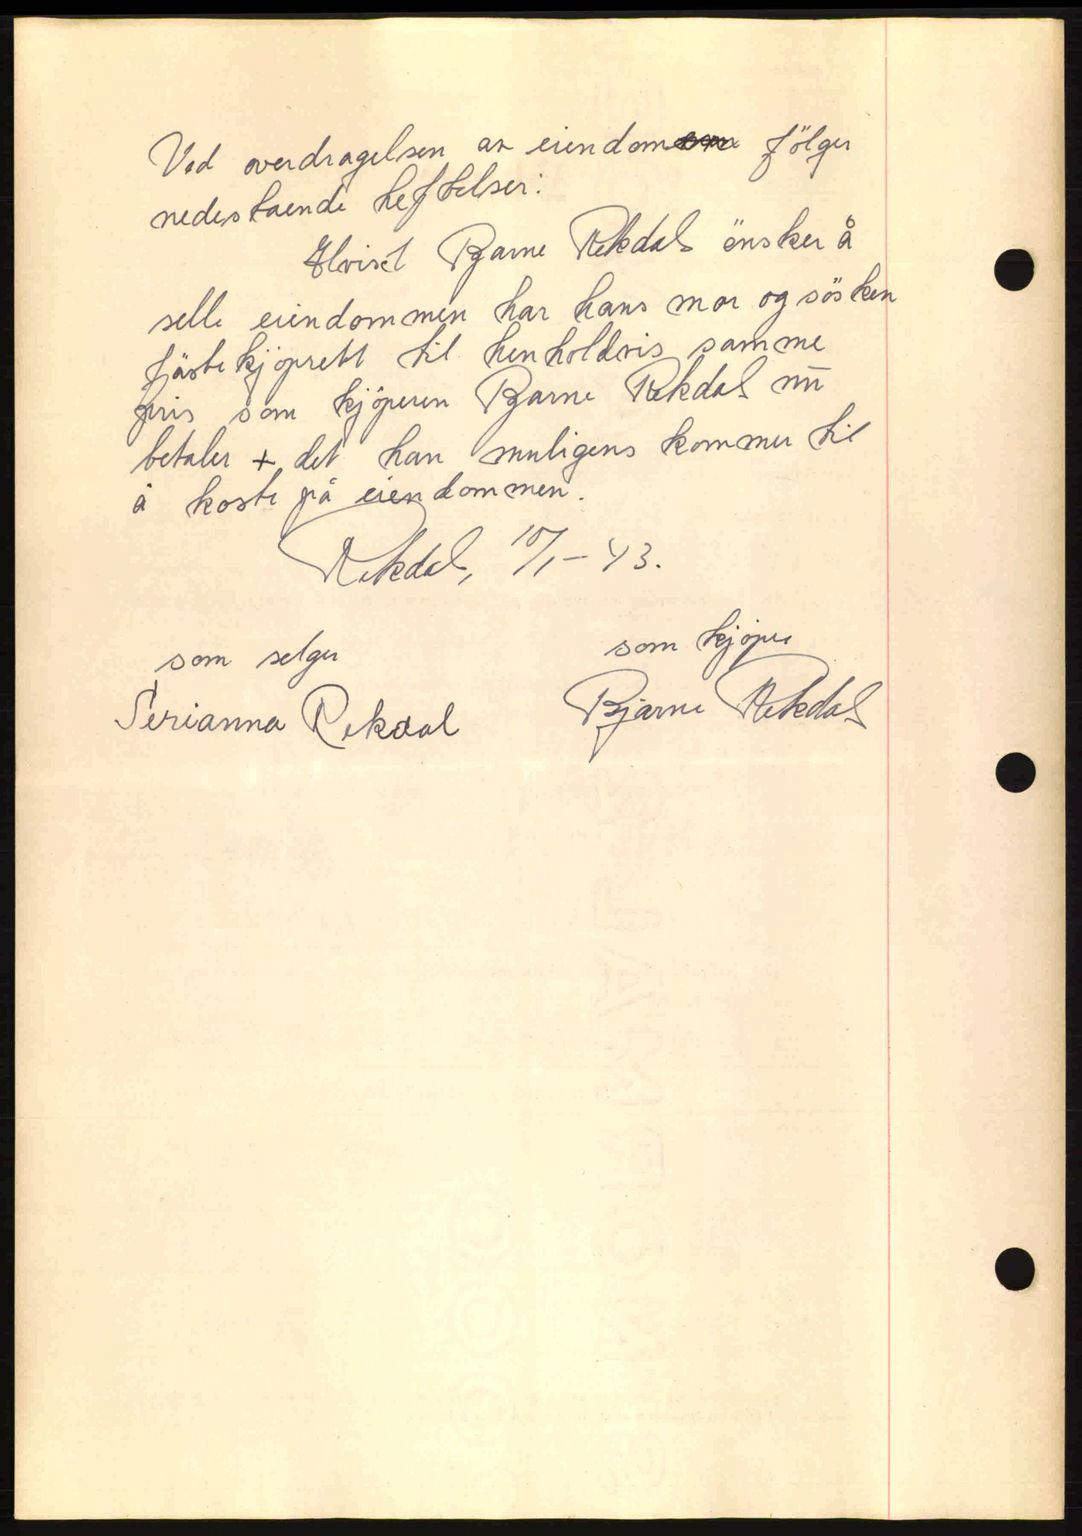 Ved overdragelsen av eiendom følger
nedestaende heftelser:
Hvist Bjarne Rekdal ønsker å
selle eiendommen har hans mor og søsken
kjøprett til henholdvis samme
pris som kjøperen Bjarne Rekdal nū
betaler + det han muligens kommer til
å koste på eiendommen.
Rekdal, 10/1 - 43.
som selger
som kjøper
Serianna Rekdal
Bjarne Rekdal